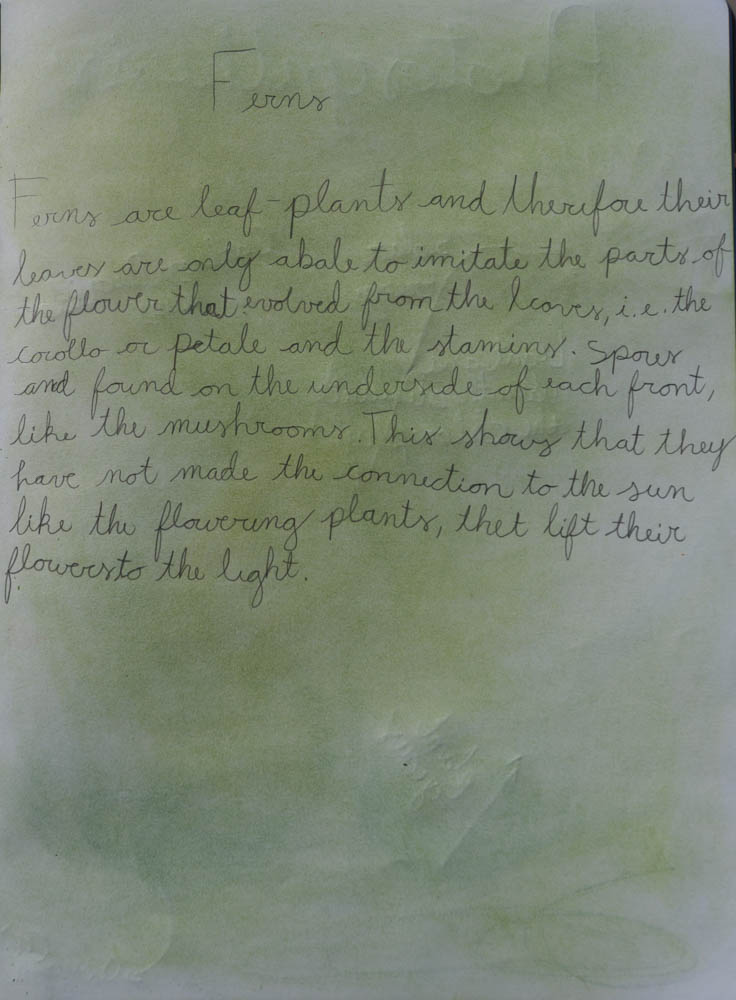 Ferns
Ferns are leaf-plants and therefore their
leaves are only abale to imitate the parts of
the flower that evolved from the leaves, i.e. the
corollo or petale and the stamins. Spores
and found on the underside of each front,
like the mushrooms. This shows that they
have not made the connection to the sun
like the flowering plants, thet lift their
flowers to the light.